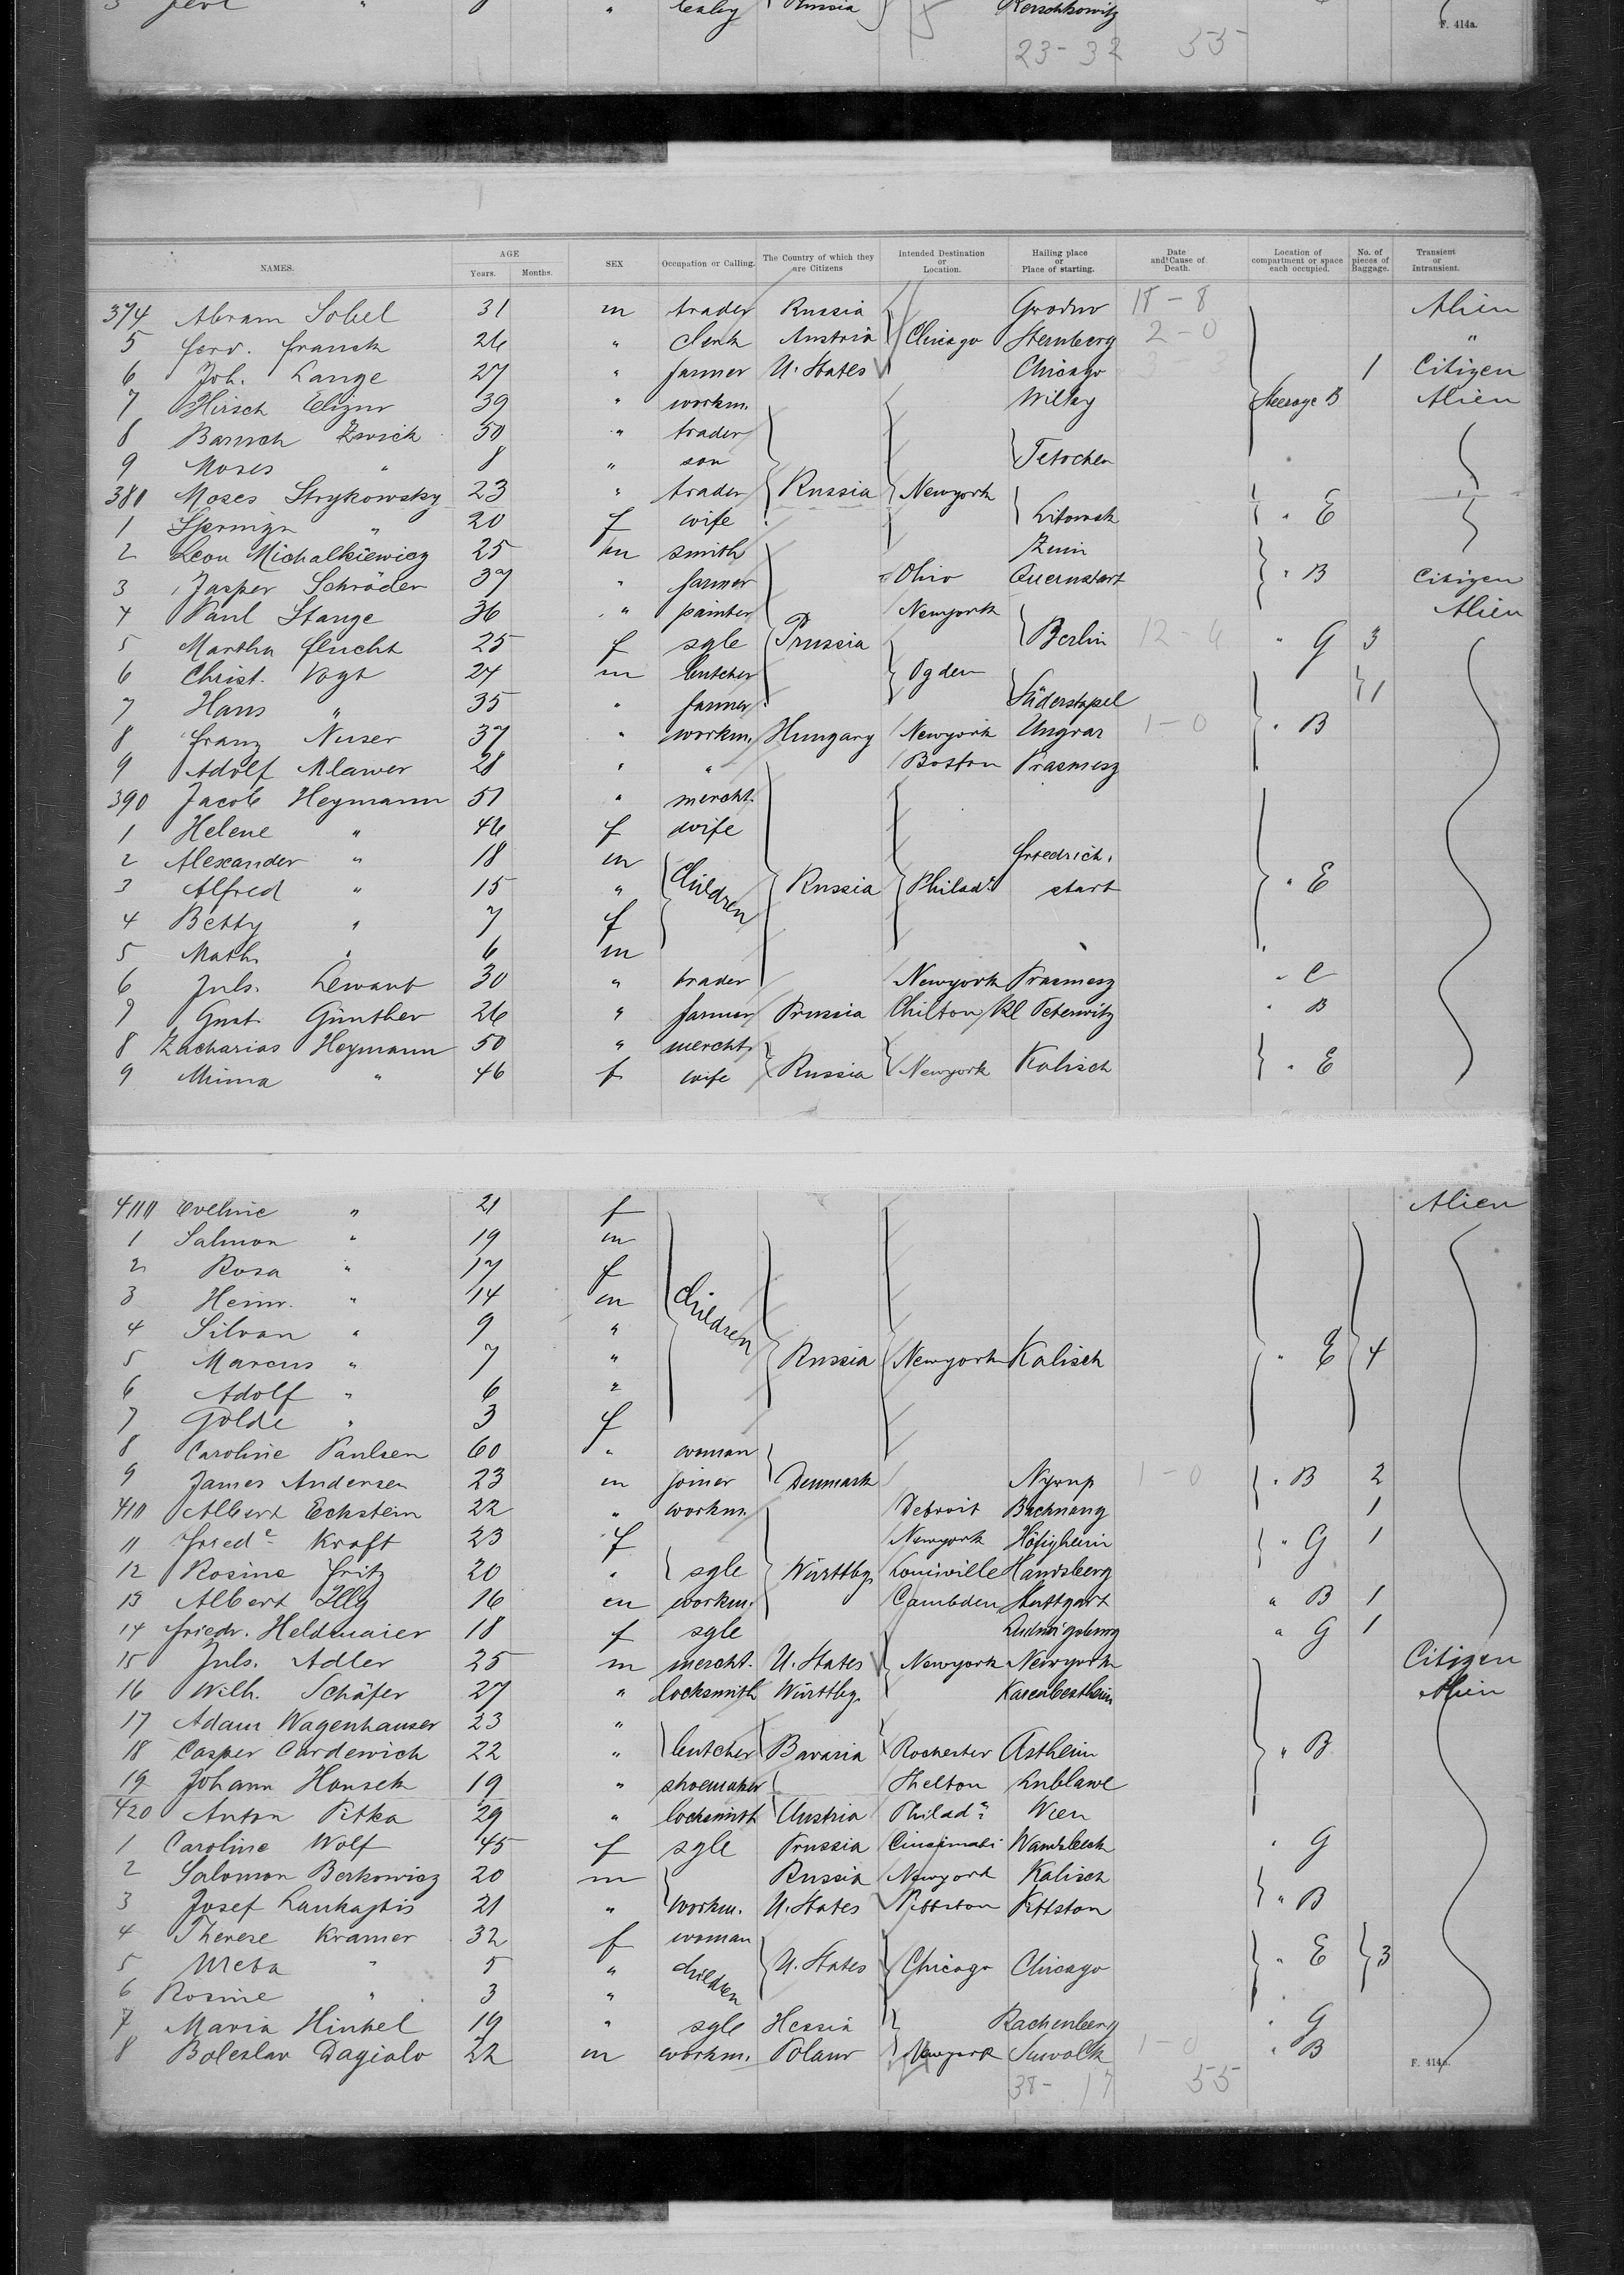 baby Russia Kerschkowitz
F. 414a.
23-32 55
NAMES. AGE Years. Months. SEX Occupation or Calling. The Country of which they are Citizens Intended Destination or Location. Hailing place or Place of starting. Date and Cause of Death. Location of compartment or space each occupied. No. of pieces of Baggage. Transient or Intransient.
374 Abram Sobel 31 m trader Russia Grodno 18-8 Alien
5 ferd. franck 26 " Clerk Austria Chicago Sternberg 2-0 "
6 Joh. Lange 27 " farmer U. States Chicago 3 1 Citizen
7 Hirsch 39 " workm. Wilky Steerage B Alien
8 Baruch Zwick 50 " trader
9 Moses " 8 " son Tetochen
380 Moses Strykowsky 23 " trader Russia Newyork
1 " 20 f wife Litowsk " E
2 Leon Michalkiewicz 25 m smith Znin
3 Jasper Schröder 37 " farmer Ohio Quernstart " B Citizen
4 Paul Stange 36 " painter Newyork Alien
5 Martha flucht 25 f sgle Prussia Berlin 12-4 " G 3
6 Christ. Vogt 24 m butcher Ogden 1
7 Hans " 35 " farmer Süderstapel
8 franz Nuser 37 " workm. Hungary Newyork Ungvar 1-0 " B
9 Adolf Mlawer 28 " " Boston Prasmesz
390 Jacob Heymann 51 " mercht.
1 Helene " 46 f wife
2 Alexander " 18 m friedrich.
3 Alfred " 15 " Children Russia Philada. start " E
4 Betty " 7 f
5 Math. " 6 m
6 Juls. Lewant 30 " trader Newyork Prasmesz " C
7 Gust. Günther 26 " farmer Prussia Chilton Kl Peterwitz " B
8 Zacharias Heymann 50 " mercht.
9 Mina " 46 f wife Russia Newyork Kalisch " E
400 Eveline " 21 f Alien
1 Salmon " 19 m
2 Rosa " 17 f
3 Heinr. " 14 m children
4 Silvan " 9 "
5 Marcus " 7 " Russia Newyork Kalisch " E 4
6 Adolf " 6 "
7 Golde " 3 f
8 Caroline Paulsen 60 " woman
9 James Andersen 23 m joiner Denmark Nyrup 1-0 " B 2
410 Albert Eckstein 22 " workm. Detroit Backnang 1
11 friedc. Kraft 23 f Newyork Höfigheim " G 1
12 Rosine fritz 20 " sgle Württbg. Louisville Handsberg
13 Albert Illg 16 m workm. Cambden Stuttgart " B 1
14 friedr. Heldmaier 18 f sgle Ludwigsburg " G 1
15 Juls. Adler 25 m mercht. U. States Newyork Newyork Citizen
16 Wilh. Schäfer 27 " locksmith Württbg. Alien
17 Adam Wagenhauser 23 "
18 Casper Cardewich 22 " butcher Bavaria Rochester Astheim " B
19 Johann Honsek 19 " shoemaker Shelton Lublawe
420 Anton Pitka 29 " locksmith Austria Philada. Wien
1 Caroline Wolf 45 f sgle Prussia Cincinnati Wandsbeck " G
2 Salomon Berkowicz 20 m Russia Newyork Kalisch
3 Josef Lankajtis 21 " workm. U. States Pittston Pittston " B
4 Therese Kramer 32 f woman
5 Meta " 5 " children U. States Chicago Chicago " E 3
6 Rosine " 3 "
7 Maria Hinkel 19 " sgle Hessia Rachenberg " G
8 Boleslav Dagialo 22 m workm. Poland Newyork Suwalk 1-0 " B
F. 414a.
38-17 55